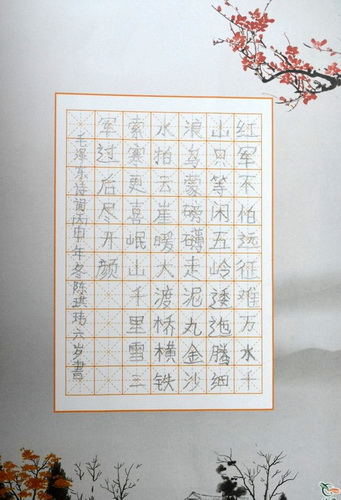 红军不怕远征难万水千
山只等闲五岭逶迤腾细
浪乌蒙磅礴走泥丸金沙
水拍云崖暖大渡桥横铁
索寒更喜岷山千里雪三
军过后尽开颜
毛泽东诗词丙申年冬陈琪玮六岁书